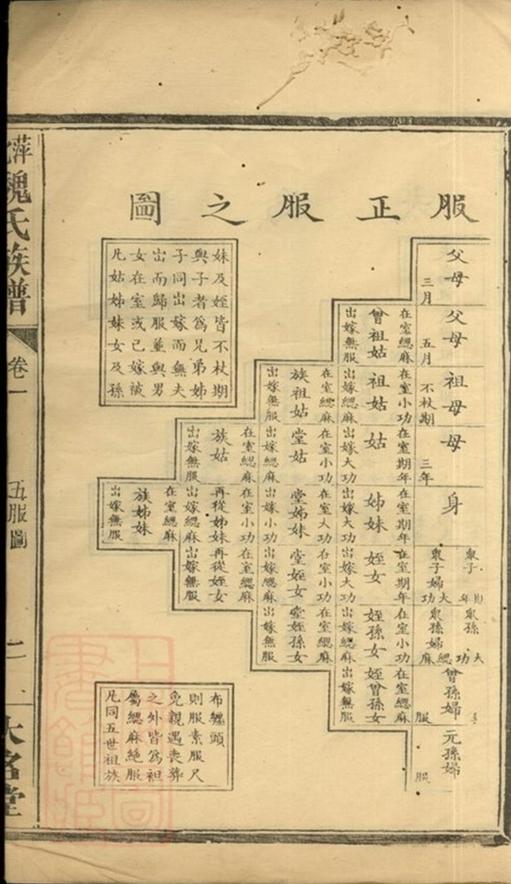 服正服之圖
父母
三月
父母
五月
祖母
不杖期
母
三年
身
衆子
衆子婦
大功
衆孫
衆孫婦
大功
緦麻
曾孫婦
服
元孫婦
服
在室緦麻
曾祖姑
出嫁無服
在室小功
祖姑
出嫁緦麻
在室期年
姑
出嫁大功
在室期年
姊妹
出嫁大功
在室期年
姪女
出嫁大功
在室小功
姪孫女
出嫁緦麻
在室緦麻
姪曾孫女
出嫁無服
在室緦麻
族祖姑
出嫁無服
在室小功
堂姑
出嫁緦麻
在室大功
堂姊妹
出嫁小功
在室小功
堂姪女
出嫁緦麻
在室緦麻
堂姪孫女
出嫁無服
在室緦麻
族姑
出嫁無服
在室小功
再從姊妹
出嫁緦麻
在室緦麻
再從姪女
出嫁無服
在室緦麻
族姊妹
出嫁無服
妹及姪皆不杖期
與子者爲兄弟姊
子同出嫁而無夫
出而歸服並與男
女在室或已嫁被
凡姑姊妹女及孫
布纏頭
則服素服尺
免親遇喪葬
之外皆爲袒
屬緦麻絶服
凡同五世祖族
萍
魏氏族譜
卷一
五服圖
二
大名堂